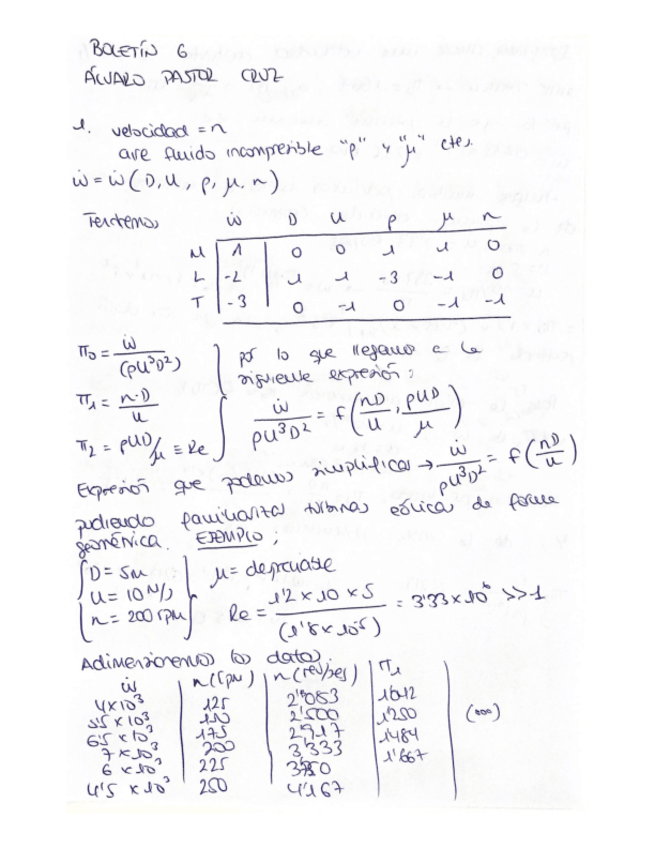 BOLETÍN 6
ÁLVARO PASTOR CRUZ
1. velocidad = n
aire fluido incompresible "ρ" y "μ" ctes.
ẇ = ẇ (D, U, ρ, μ, n)
Tenemos ẇ D U ρ μ n
M 1 0 0 1 1 0
L -2 1 1 -3 -1 0
T -3 0 -1 0 -1 -1
π₀ = ẇ/(ρU³D²) por lo que llegamos a la
siguiente expresión:
π₁ = n·D/U
ẇ/ρU³D² = f(nD/U, ρUD/μ)
π₂ = ρUD/μ ≡ Re
Expresión que podemos simplificar → ẇ/ρU³D² = f(nD/U)
pudiendo familiarizar turbinas eólicas de forma
geométrica. EJEMPLO:
D = 5m μ = despreciable
U = 10 m/s
n = 200 rpm Re = 1'2 × 10 × 5/(1'8 × 10⁻⁵) = 3'33 × 10⁶ >> 1
Adimensionemos los datos
ẇ n (rpm) n (rev/seg) π₁
4×10³ 125 2'083 1'042
5'5 × 10³ 2'500 1'250 (ooo)
6'5 × 10³ 175 2'917 1'484
7 × 10³ 200 3'333 1'667
6 × 10³ 225
4'5 × 10³ 250 4'167